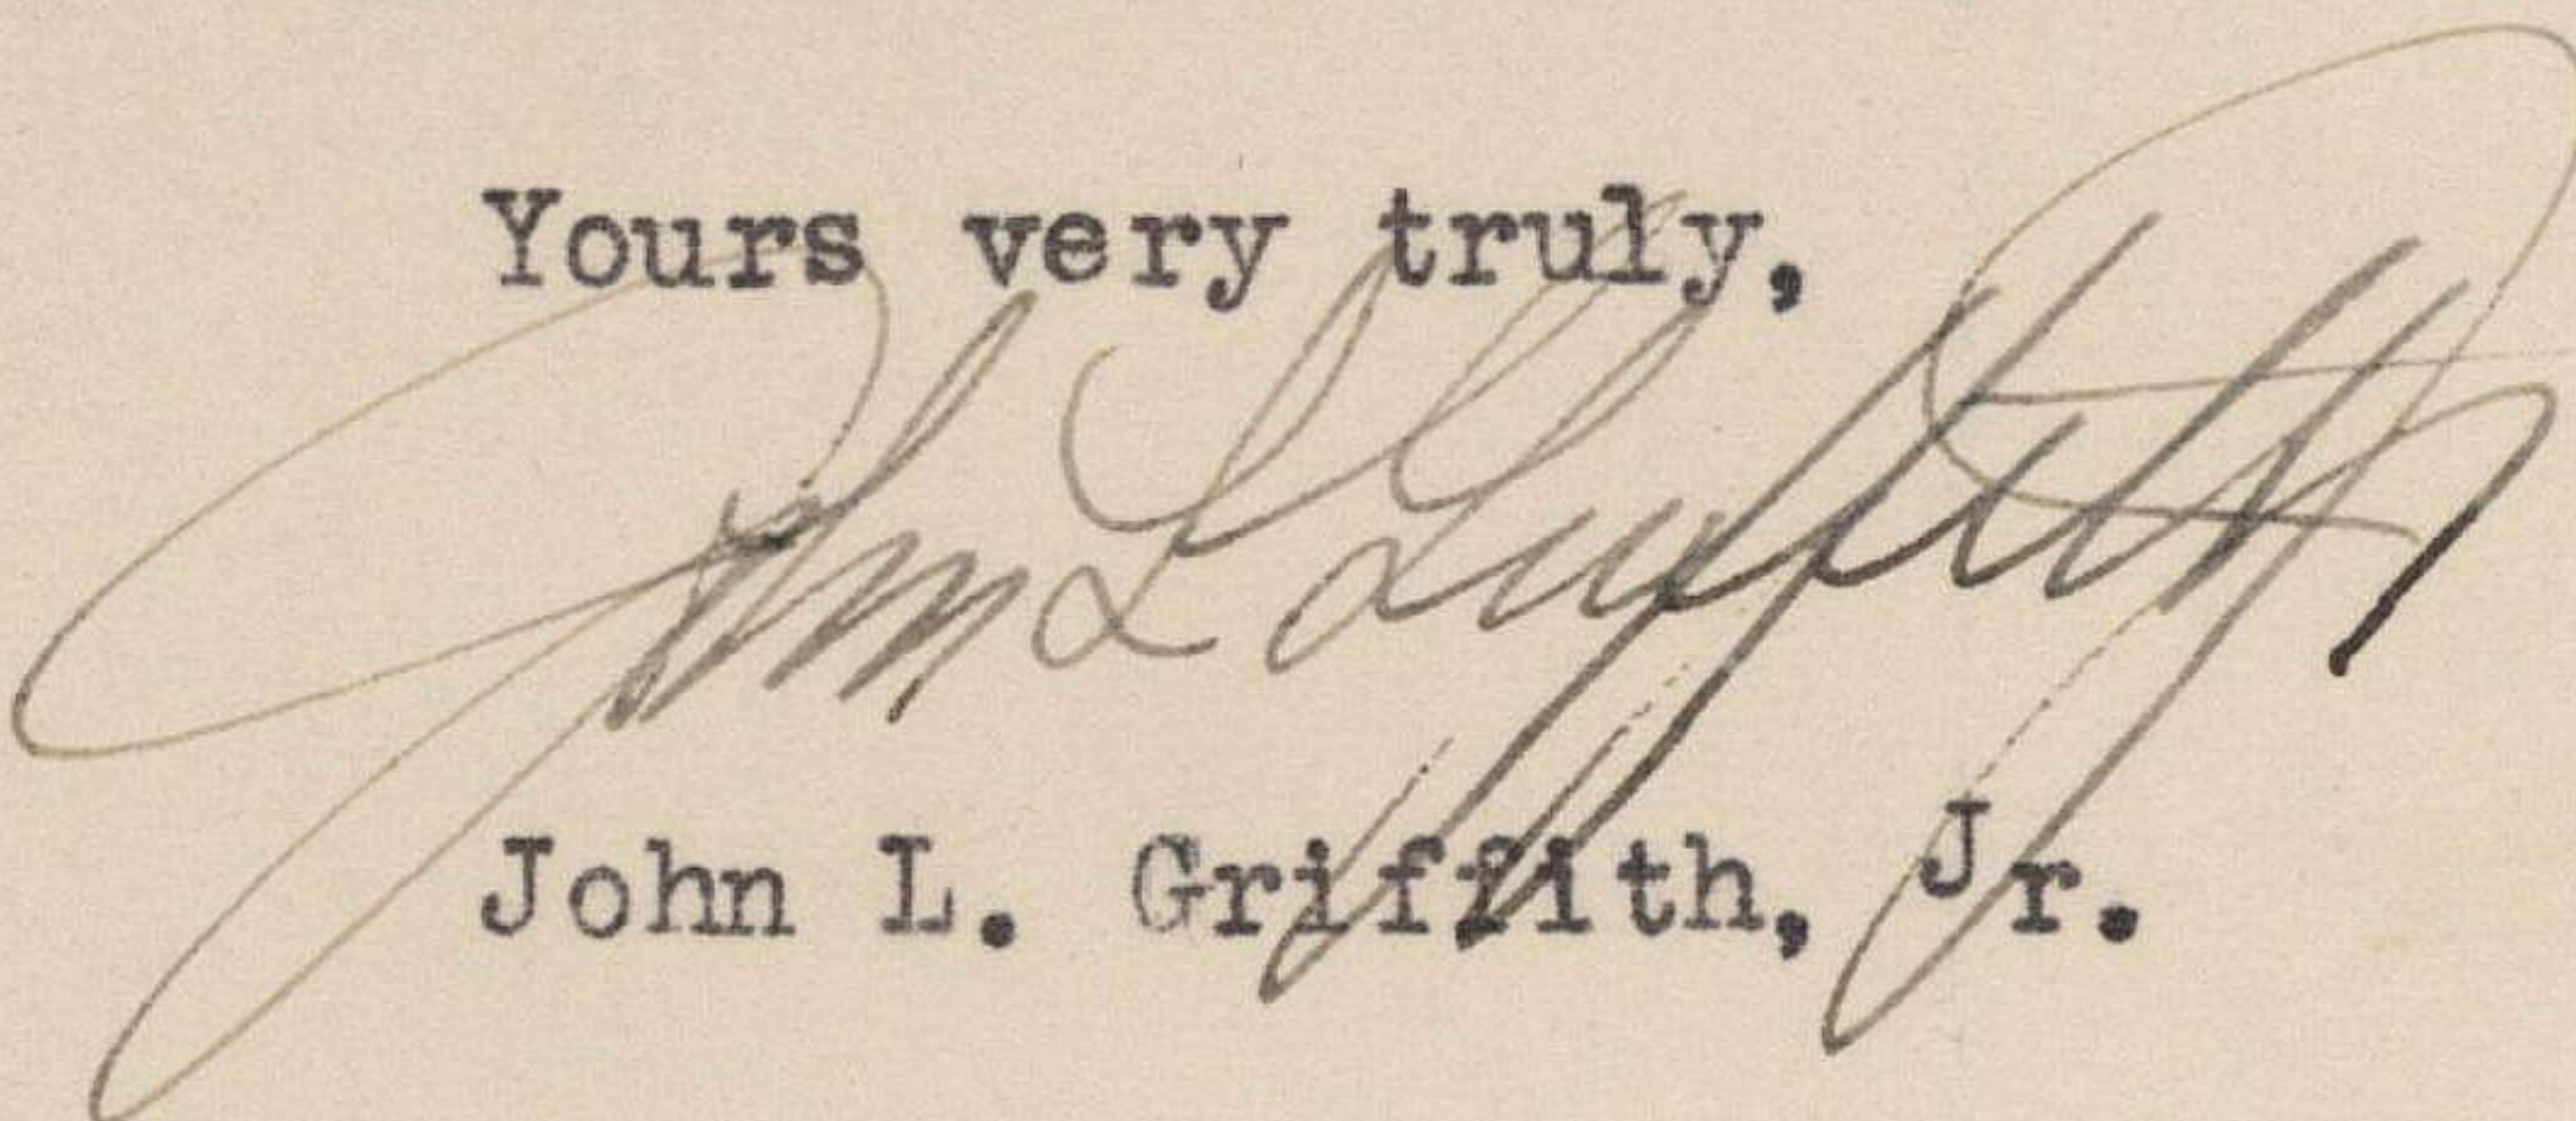 Yours very truly,
John L Griffith Jr
John L. Griffith, Jr.